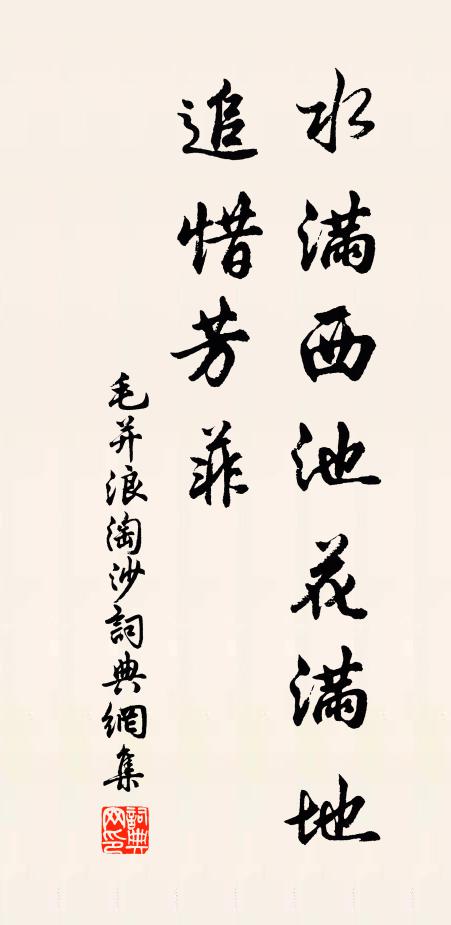 水满西池花满地
追惜芳菲
毛并浪淘沙詞典網集
詞典網印